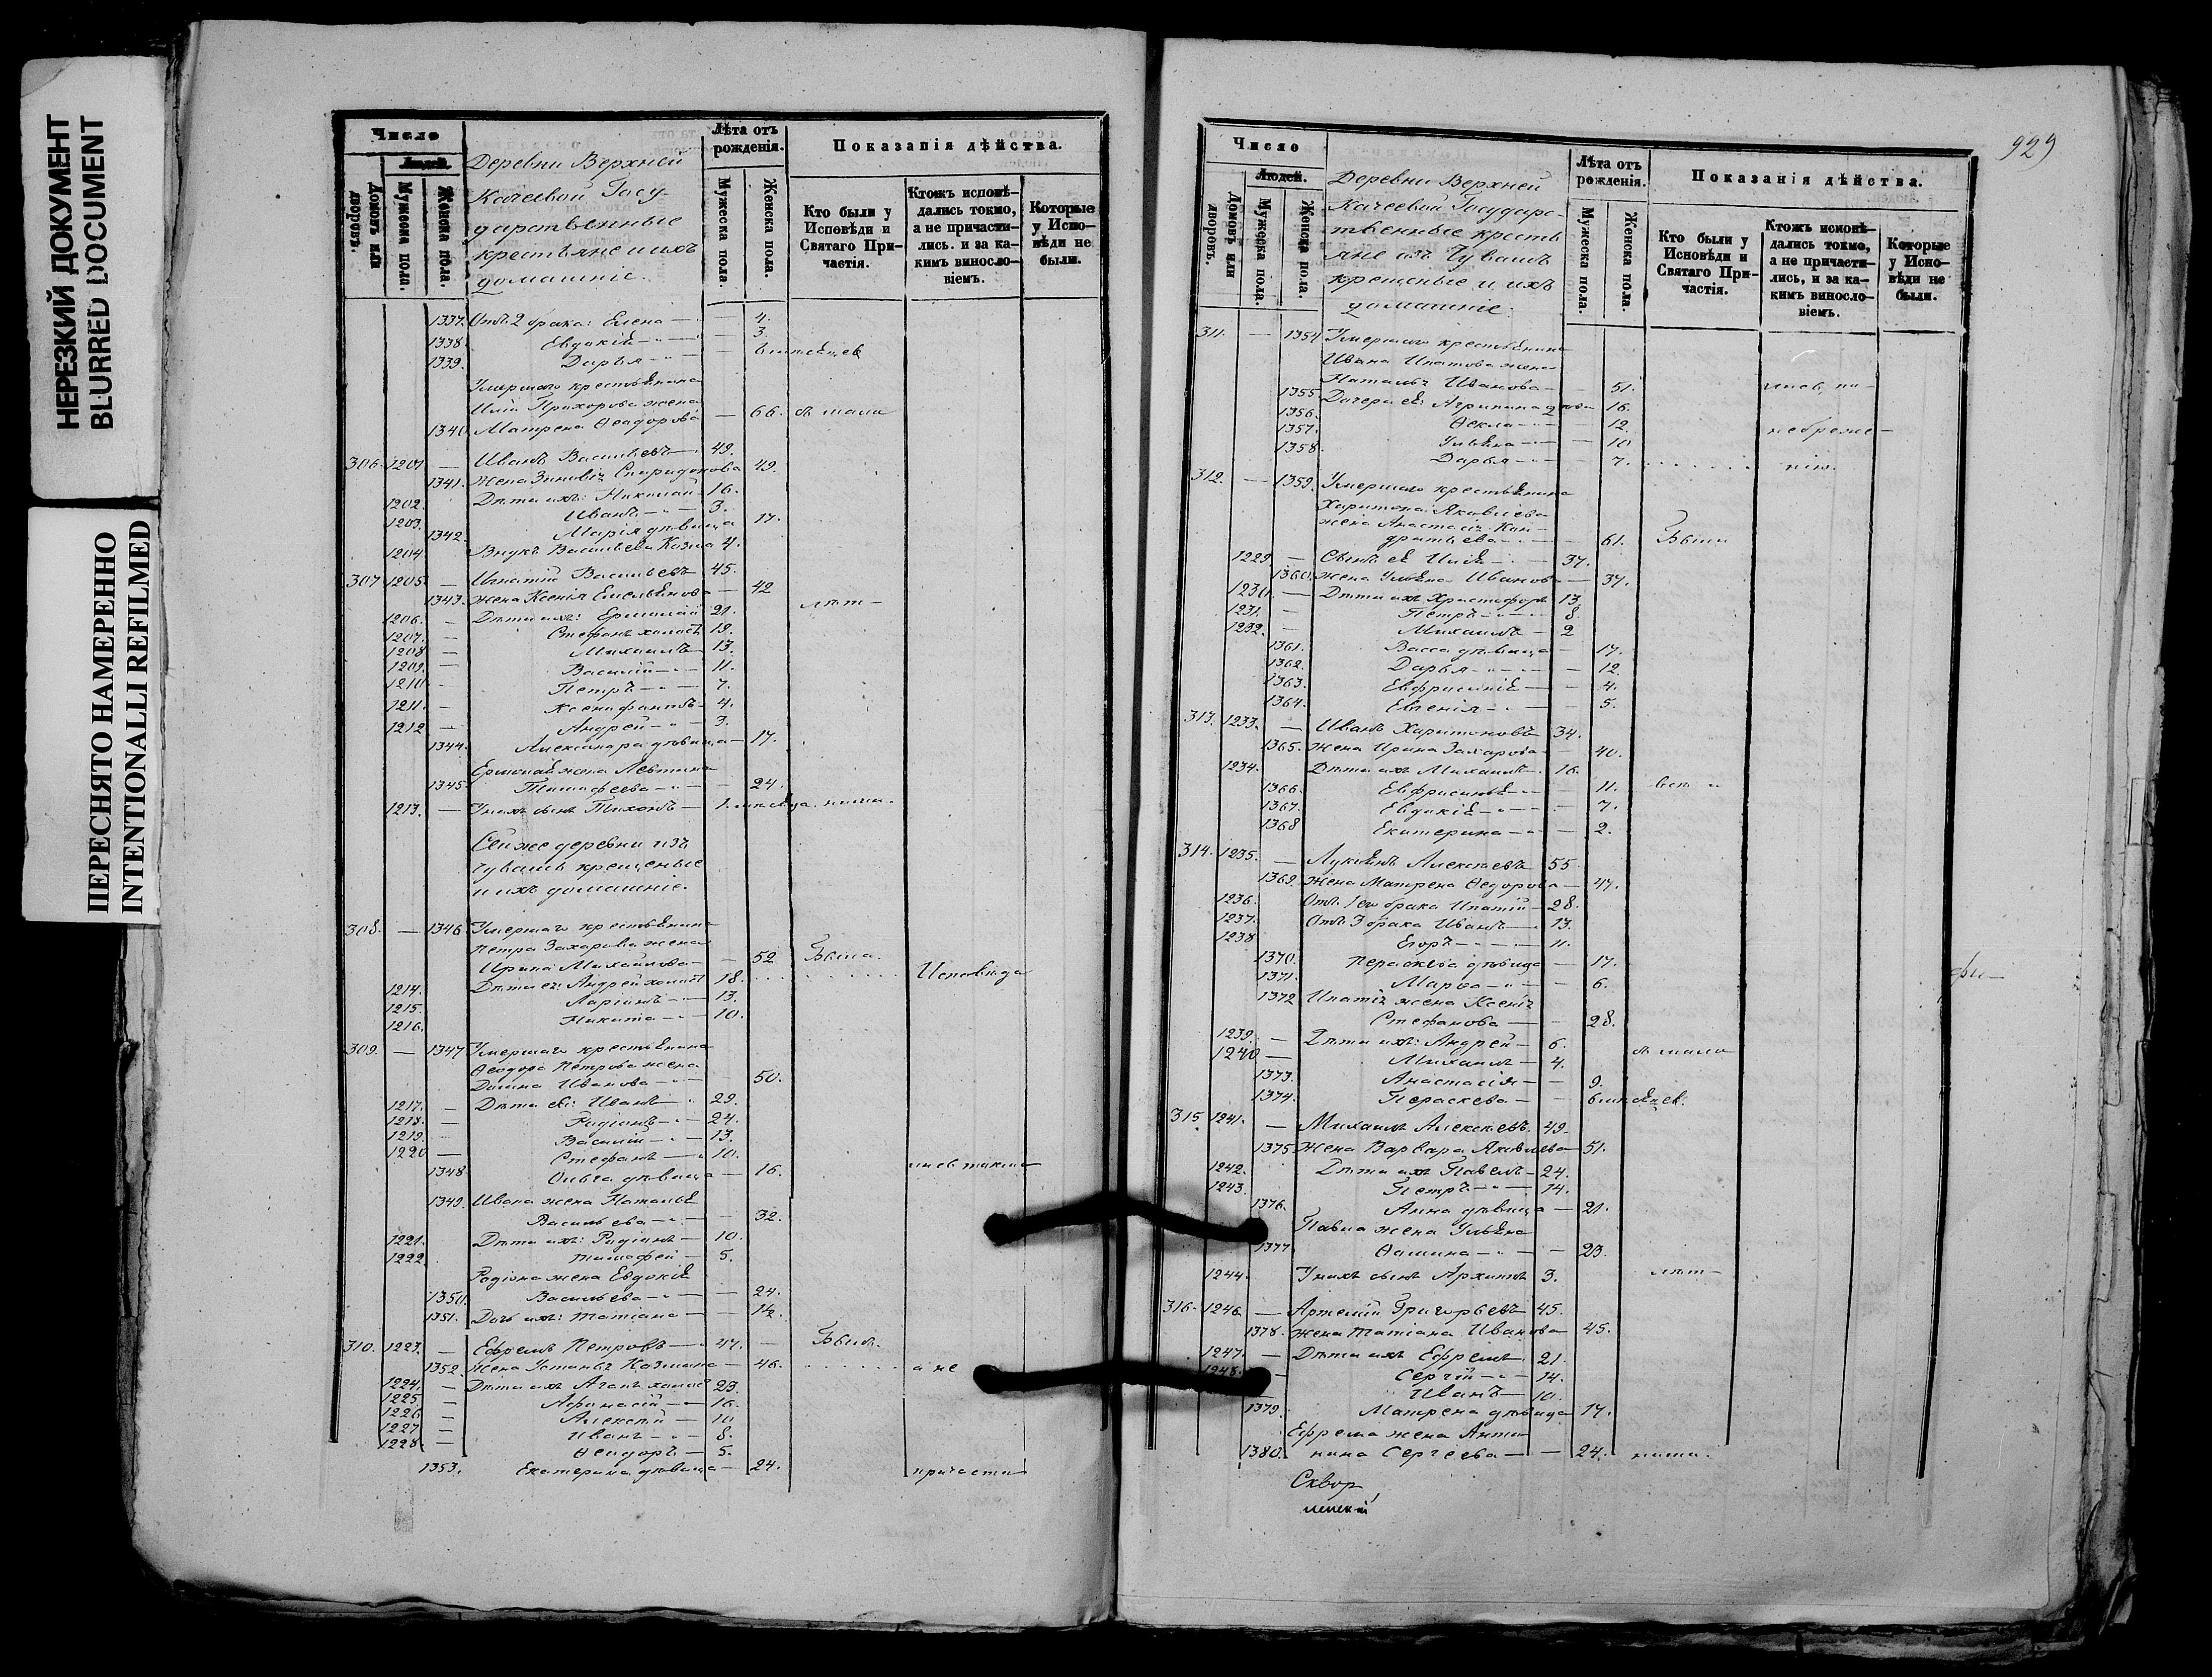 НЕРЕЗКИЙ ДОКУМЕНТ
BLURRED DOCUMENT
ПЕРЕСНЯТО НАМЕРЕННО
INTENTIONALLI REFILMED
Число
Людей.
Домовъ или дворовъ.
Мужеска пола.
Женска пола.
Деревни Верхней
Качеевой Госу-
дарственные
крестьяне и ихъ
домашніе.
Лѣта отъ рожденія.
Мужеска пола.
Женска пола.
Показанія дѣйства.
Кто были у Исповѣди и Святаго При-частія.
Ктожъ исповѣ-дались токмо, а не причасти-лись. и за ка-кимъ виносло-віемъ.
Которые у Испо-вѣди не были.
1337. Отъ 2 брака: Елена — 4.
1338. Евдокія — 3.
1339. Дарья — 6 мѣсяцев
Умершаго крестьянина
Иліи Прохорова жена
1340. Матрена Ѳеодорова — 66.
306. 1201 — Иванъ Васильевъ — 49.
1341. Жена Зиновія Спиридонова 49.
1202. Дѣти ихъ: Николай — 16.
1203. Иванъ — 3.
1342. Марія дѣвица 17.
1204. Внукъ Васильева Козма 4.
307 1205. — Игнатій Васильевъ 45.
1343. Жена Ксенія Емельянова — 42
1206. — Дѣти ихъ: Ермолай 21.
1207. — Стефанъ холостъ 19.
1208 — Михаилъ 13.
1209. — Василій — 11.
1210 — Петръ — 7.
1211. — Ксенофонтъ — 4.
1212 — Андрей — 3.
1344. Александра дѣвица — 17.
Ермолая жена Левтина
1345. Тимофеева — 24.
1213. — У нихъ сынъ Тихонъ —
Сей же деревни изъ
чувашъ крещеные
и ихъ домашніе.
308. — 1346. Умершаго крестьянина
Петра Захарова жена
Ирина Михайлова — 52 Были.
1214. Дѣти ея: Андрей холостъ 18. Исповѣда
1215. Ларіонъ — 13.
1216. Никита — 10.
309. — 1347 Умершаго крестьянина
Ѳеодора Петрова жена
Домна Иванова — 50.
1217. — Дѣти ея: Иванъ 29.
1218. — Родіонъ — 24.
1219. — Василій — 13.
1220 — Стефанъ — 10.
1348 Ольга дѣвица — 16. лись токмо
1349. Ивана жена Наталья
Васильева — 32.
1221. Дѣти ихъ: Родіонъ — 10.
1222. Тимофей — 5.
Родіона жена Евдокія
1350. Васильева — 24.
1351. Дочь ихъ: Татіана — 1½.
310. 1223. — Ефремъ Петровъ — 47. — Былъ.
1352. Жена Устинья Козмина — 46. а не
1224. — Дѣти ихъ Агапъ холост 23.
1225. — Афанасій — 16.
1226 — Алексѣй — 10
1227 — Иванъ — 8.
1228. — Ѳеодоръ — 5.
1353. Екатерина дѣвица — 24. причасти
929
Число
Людей.
Домовъ или дворовъ.
Мужеска пола.
Женска пола.
Деревни Верхней
Качеевой Государс-
твенные кресть
яне изъ Чувашъ
крещеные и ихъ
домашніе.
Лѣта отъ рожденія.
Мужеска пола.
Женска пола.
Показанія дѣйства.
Кто были у Исповѣди и Святаго При-частія.
Ктожъ исповѣ-дались токмо, а не причасти-лись, и за ка-кимъ винослo-віемъ.
Которые у Испо-вѣди не были.
311. — 1354 Умершаго крестьянина
Ивана Ипатова жена
Наталья Иванова — 51. лись, по-
1355 Дочери ея: Агрипина 16.
1356. Ѳекла — 12.
1357. Ульяна — 10 небреже-
1358. Дарья — 7. нію.
312. — 1359. Умершаго крестьянина
Харитона Яковлева
жена Анастасія Кон-
дратьева — 61. Были
1229 — Сынъ ея Илія — 37.
1360. Жена Ульяна Иванова — 37.
1230. — Дѣти ихъ Христофоръ 13.
1231. — Петръ — 8.
1232. — Михаилъ — 2
1361. Васса дѣвица — 17.
1362. Дарья — 12.
1363. Евфросинія — 4.
1364. Евгенія — 5.
313. 1233. — Иванъ Харитоновъ 34.
1365. Жена Ирина Захарова — 40.
1234. Дѣти ихъ Михаилъ 16.
1366. Евфросинья — 11.
1367. Евдокія — 7.
1368 Екатерина — 2.
314. 1235. — Лукіянъ Алексѣевъ 55
1369. Жена Матрена Ѳедорова — 47.
1236. Отъ 1го брака Ипатій — 28.
1237. Отъ 3 брака Иванъ — 13.
1238 Егоръ — 11.
1370. Параскева дѣвица — 17.
1371. Марѳа — 6.
1372 Ипатія жена Ксенія
Стефанова — 28.
1239. — Дѣти ихъ: Андрей — 6.
1240 — Михаилъ — 4.
1373. Анастасія — 9.
1374. Параскева — 6 мѣсяцев.
315. 1241. — Михаилъ Алексѣевъ. 49.
1375 Жена Варвара Яковлева — 51.
1242. Дѣти ихъ Павелъ — 24.
1243. Петръ — 14.
1376. Анна дѣвица — 21.
Павла жена Ульяна
1377 Ѳомина — 23.
1244. У нихъ сынъ Архипъ 3.
316. 1246. — Артемій Григорьевъ 45.
1378. Жена Татіана Иванова 45.
1247. — Дѣти ихъ Ефремъ. 21.
1248. — Сергій — 14.
— Иванъ — 10.
1379. Матрена дѣвица 17.
Ефрема жена Анто-
1380. нина Сергѣева — 24.